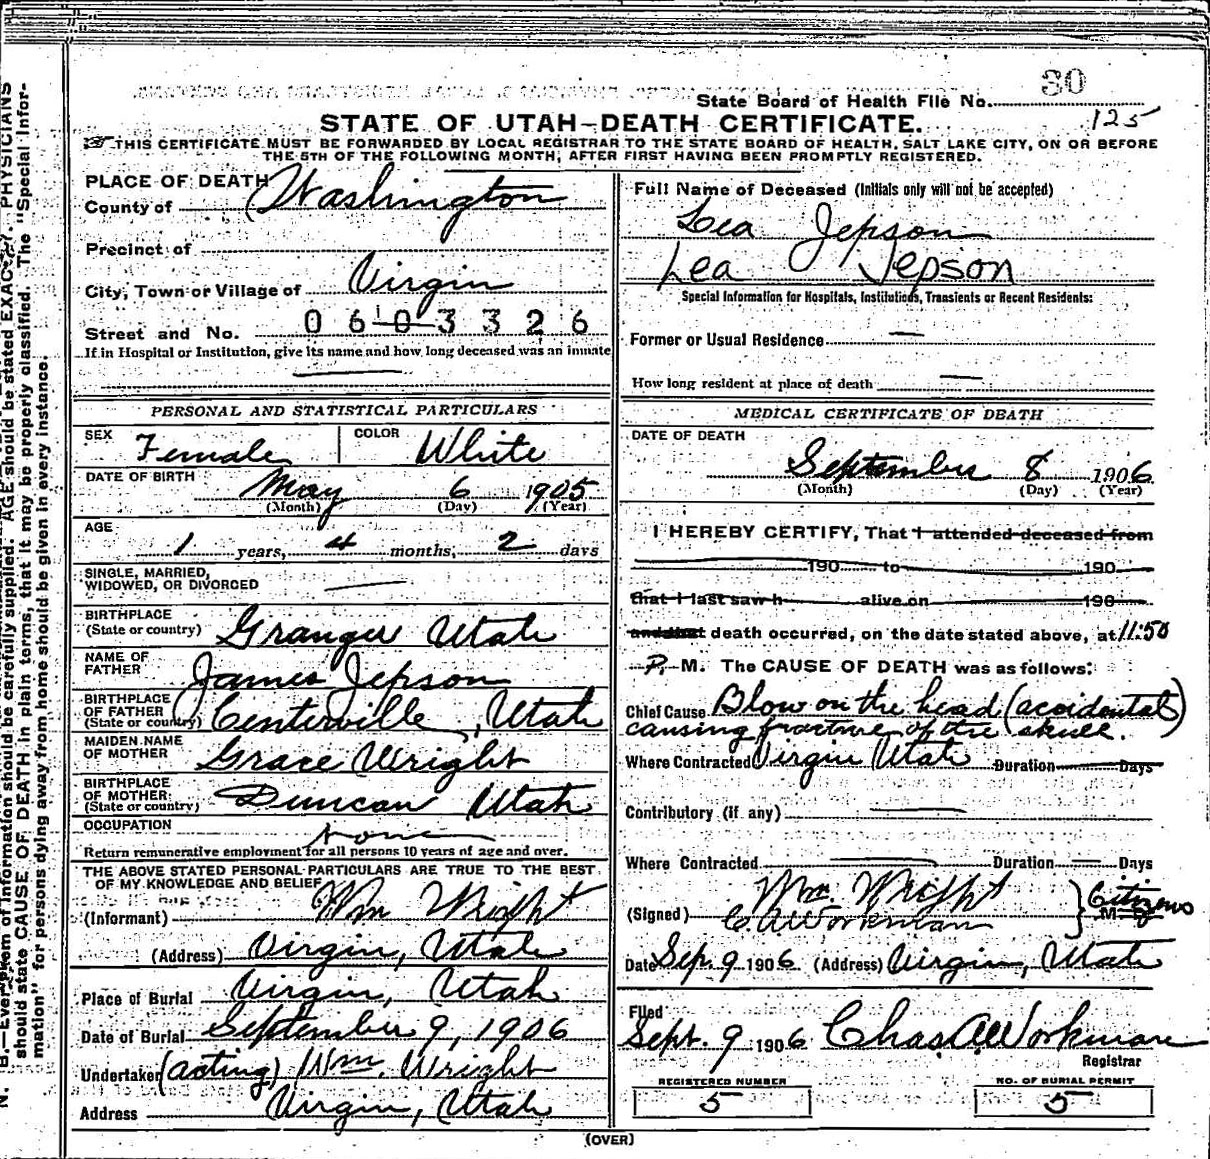 80
State Board of Health File No.
125
STATE OF UTAH—DEATH CERTIFICATE.
THIS CERTIFICATE MUST BE FORWARDED BY LOCAL REGISTRAR TO THE STATE BOARD OF HEALTH, SALT LAKE CITY, ON OR BEFORE
THE 5TH OF THE FOLLOWING MONTH, AFTER FIRST HAVING BEEN PROMPTLY REGISTERED.
PLACE OF DEATH
County of Washington
Precinct of
City, Town or Village of Virgin
Street and No. 0 6 0 3 3 2 6
If in Hospital or Institution, give its name and how long deceased was an inmate
—
PERSONAL AND STATISTICAL PARTICULARS
SEX Female COLOR White
DATE OF BIRTH May 6 1905
(Month) (Day) (Year)
AGE
1 years, 4 months, 2 days
SINGLE, MARRIED,
WIDOWED, OR DIVORCED —
BIRTHPLACE
(State or country) Granger Utah
NAME OF
FATHER James Jepson
BIRTHPLACE
OF FATHER
(State or country) Centerville, Utah
MAIDEN NAME
OF MOTHER Grace Wright
BIRTHPLACE
OF MOTHER
(State or country) Duncan Utah
OCCUPATION None
Return remunerative employment for all persons 10 years of age and over.
THE ABOVE STATED PERSONAL PARTICULARS ARE TRUE TO THE BEST
OF MY KNOWLEDGE AND BELIEF
(Informant) Wm Wright
(Address) Virgin, Utah
Place of Burial Virgin, Utah
Date of Burial September 9, 1906
Undertaker (acting) Wm. Wright
Address Virgin, Utah
Full Name of Deceased (Initials only will not be accepted)
Lea Jepson
Lea Jepson
Special Information for Hospitals, Institutions, Transients or Recent Residents:
Former or Usual Residence —
How long resident at place of death —
MEDICAL CERTIFICATE OF DEATH
DATE OF DEATH
September 8 1906
(Month) (Day) (Year)
I HEREBY CERTIFY, That I attended deceased from
190 to 190
that I last saw h alive on 190
and that death occurred, on the date stated above, at 11:50
P. M. The CAUSE OF DEATH was as follows:
Chief Cause Blow on the head (accidental)
causing fracture of the skull.
Where Contracted Virgin Utah Duration Days
Contributory (if any) —
Where Contracted — Duration — Days
(Signed) Wm. Wright
C. A. Workman } Citizens
M. D.
Date Sep. 9 1906 (Address) Virgin, Utah
Filed
Sept. 9 1906 Chas A Workman
Registrar
REGISTERED NUMBER
5
NO. OF BURIAL PERMIT
5
(OVER)
N. B.—Every item of information should be carefully supplied. AGE should be stated EXACTLY. PHYSICIANS
should state CAUSE OF DEATH in plain terms, that it may be properly classified. The "Special Infor-
mation" for persons dying away from home should be given in every instance.